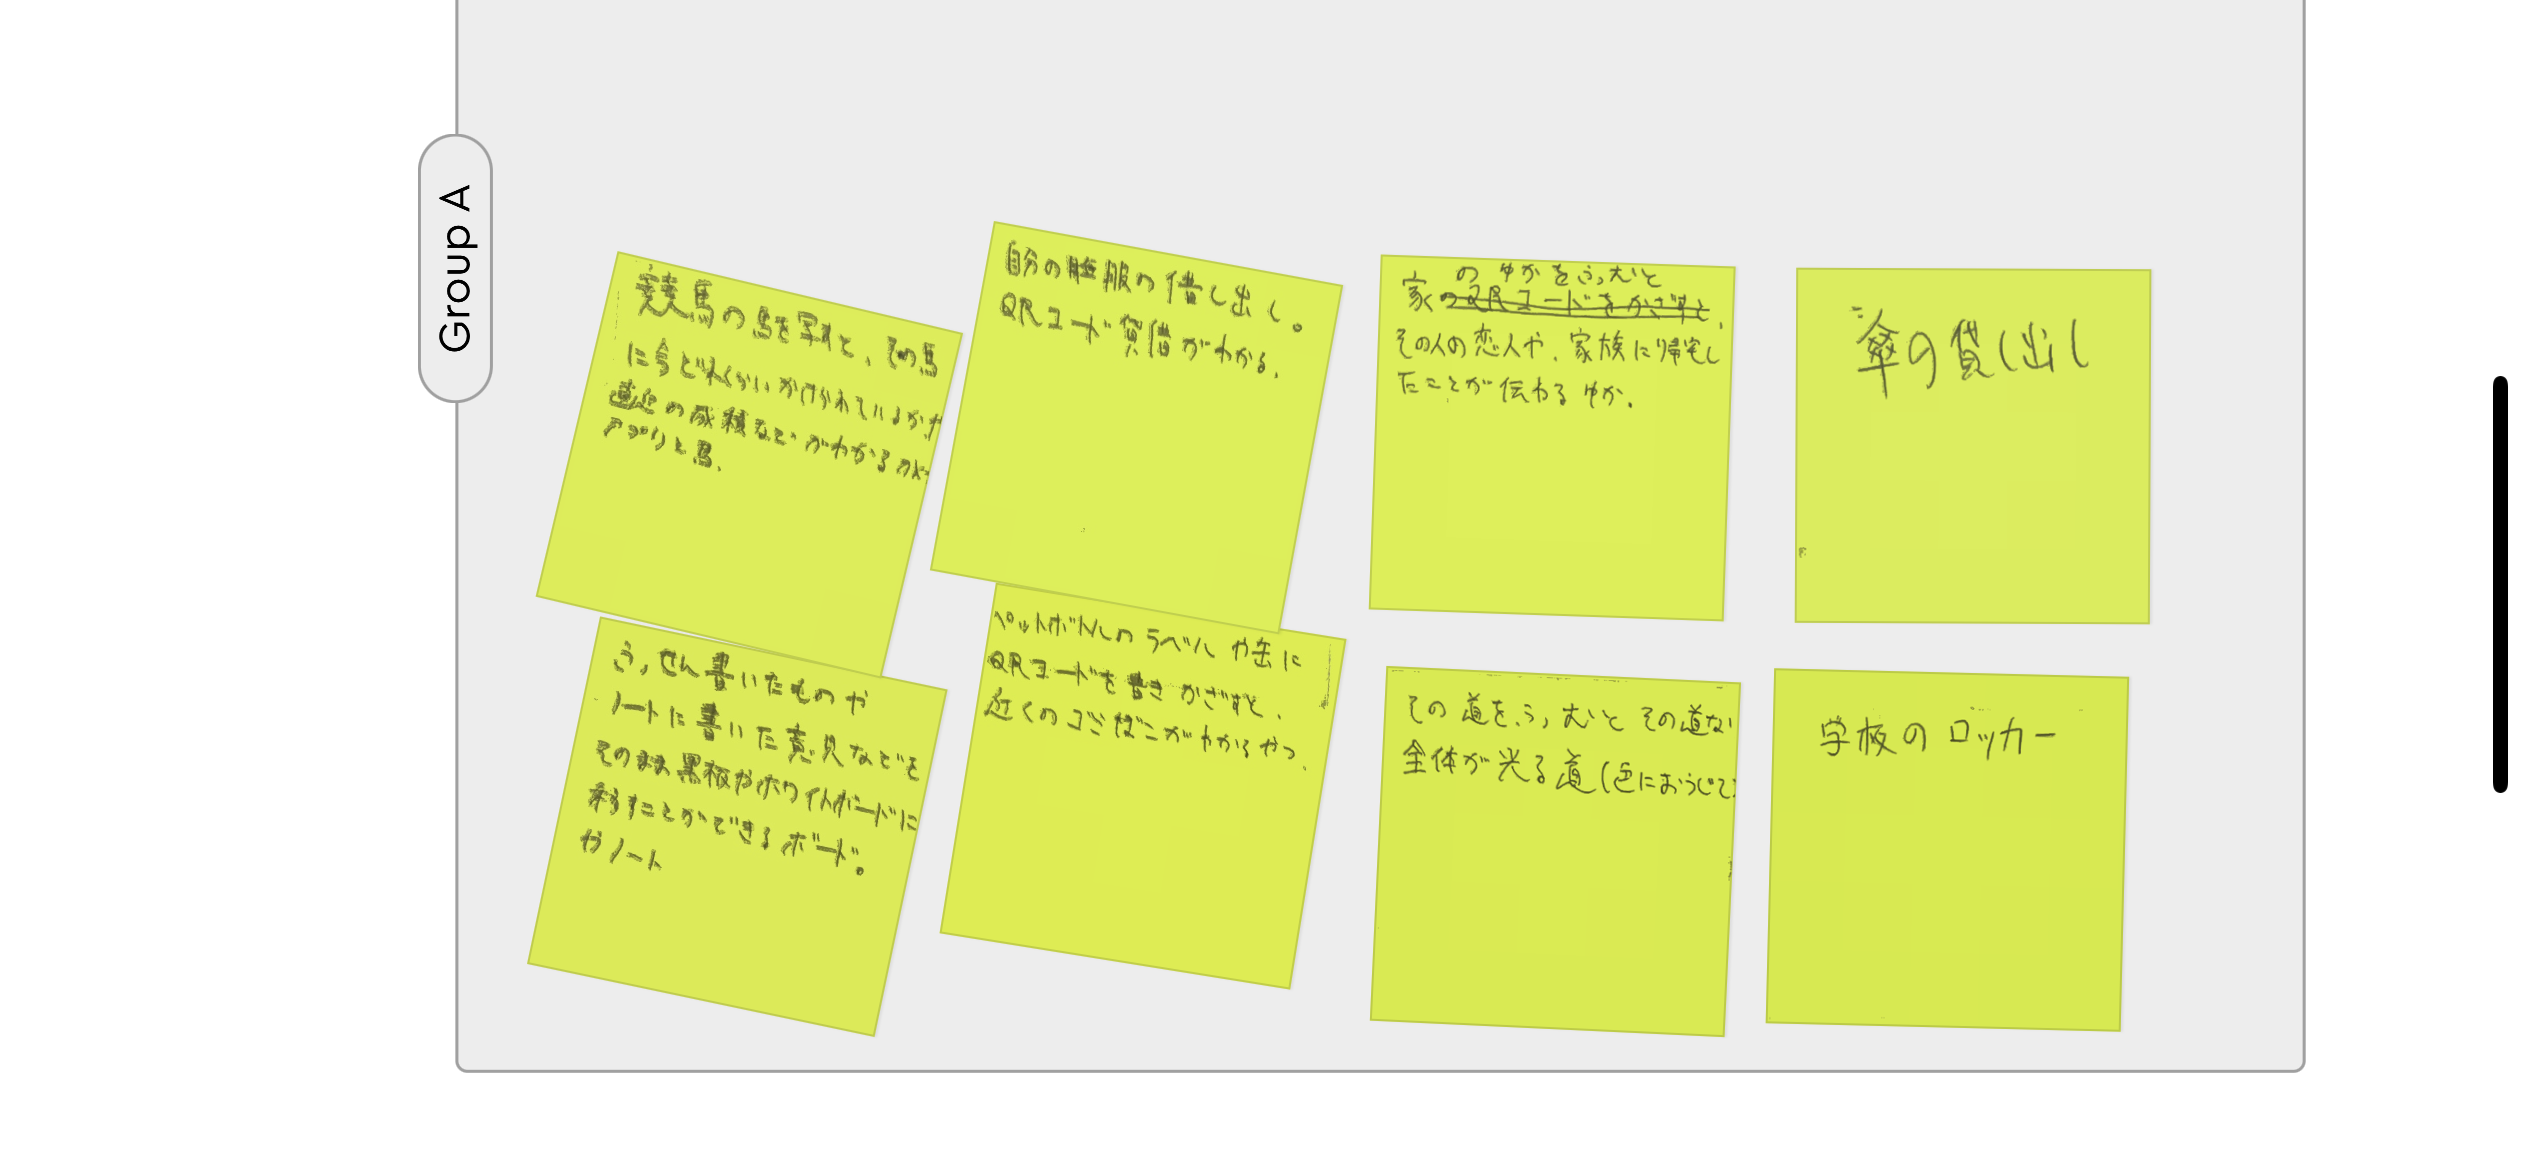 Group A
競馬の馬を写すと、その馬
に今どれくらいかけられているかや
最近の成績などがわかる
アプリと馬、
自分の 服の借し出し。
QRコード貸借がわかる、
家のゆかをふむと
その人の恋人や、家族に帰宅し
たことが伝わるゆか、
傘の貸し出し
ふせん書いたものや
ノートに書いた意見などを
そのまま黒板やホワイトボードに
移すことができるボード。
やノート
ペットボトルのラベルや缶に
QRコードを書きかざすと、
近くのゴミばこがわかるやつ、
その道をふむとその道
全体が光る道(色におうじて
学校のロッカー